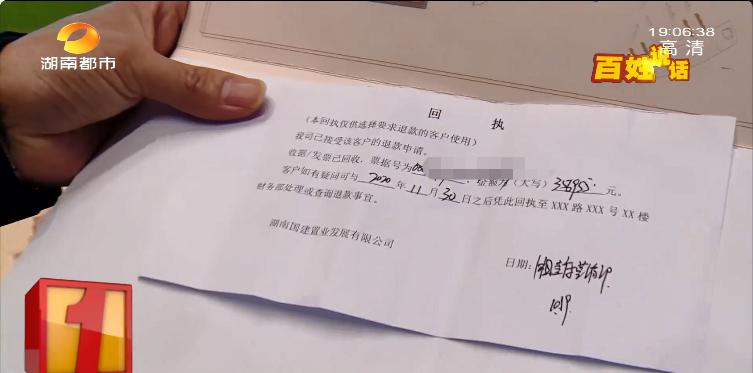 湖南都市
19:06:38
高清
百姓说话
回 执
（本回执仅供选择要求退款的客户使用）
我司已接受该客户的退款申请。
收据/发票已回收，票据号为 金额为（大写） 元。
客户如有疑问可与 2020 年 11 月 30 日之后凭此回执至 XXX 路 XXX 号 XX 楼
财务部处理或查询退款事宜。
湖南国建置业发展有限公司
日期：
1